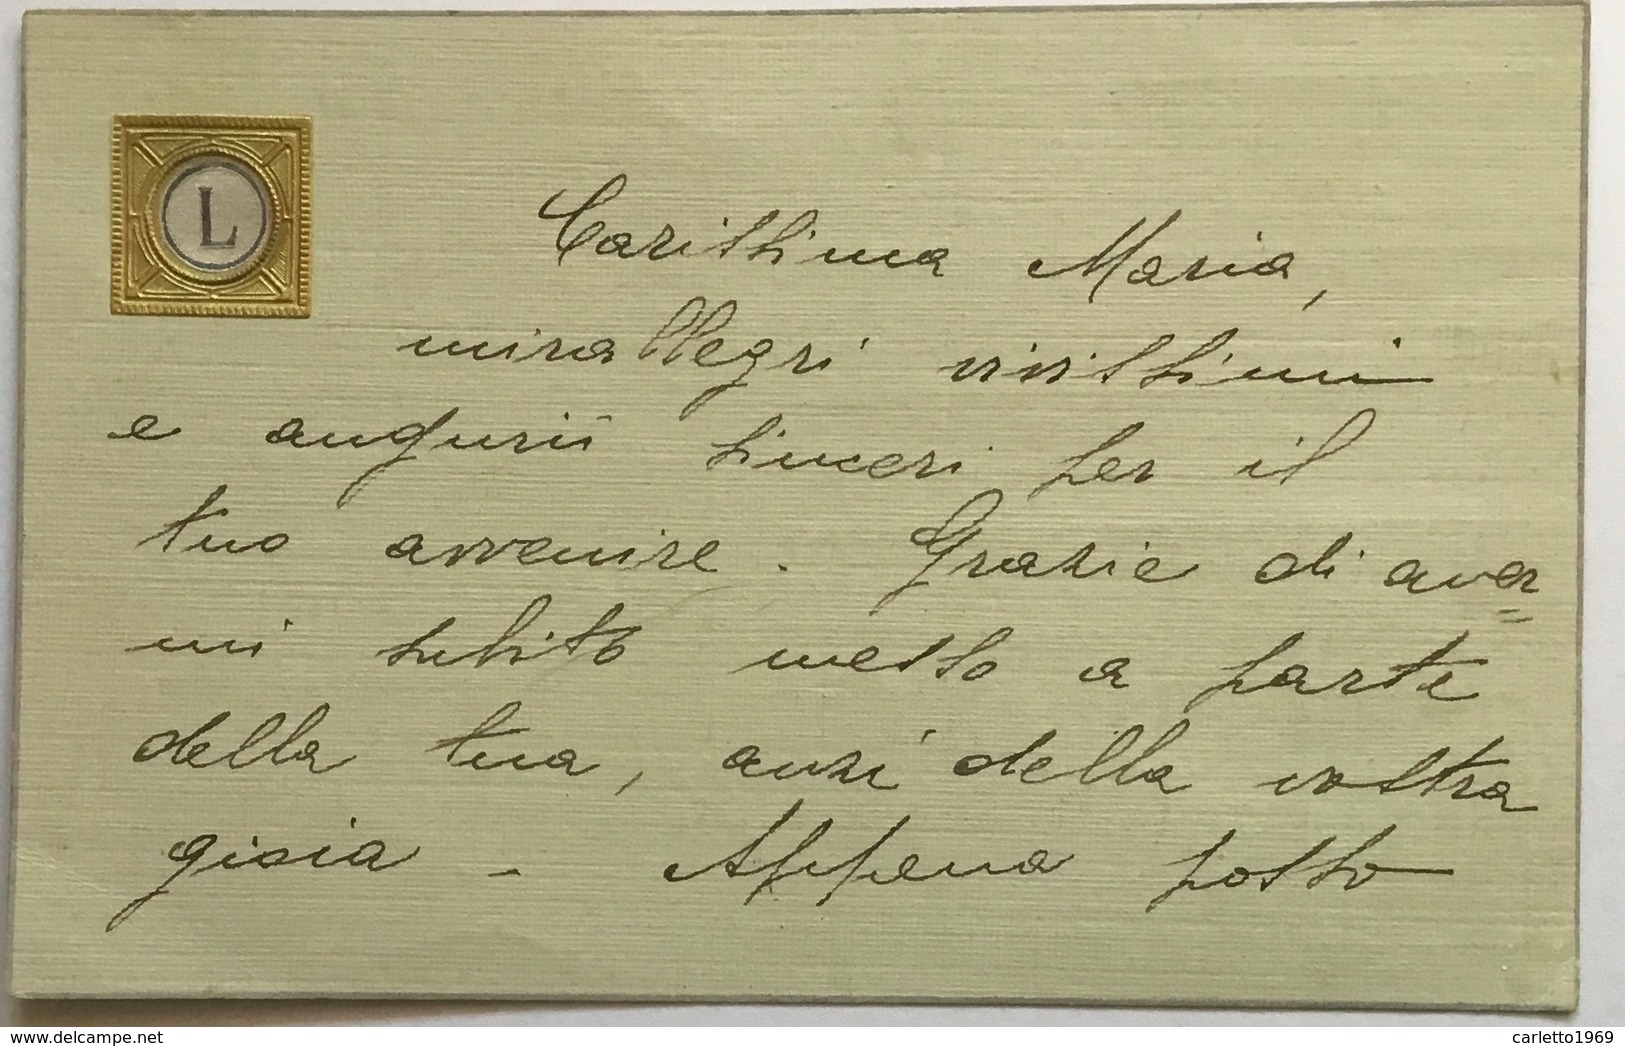 L
Carissima Maria,
mirallegri vivissimi
e augurii sinceri per il
tuo avvenire. Grazie di aver=
mi subito messo a parte
della tua, anzi della vostra
gioia - Appena posso
www.delcampe.net
carletto1969